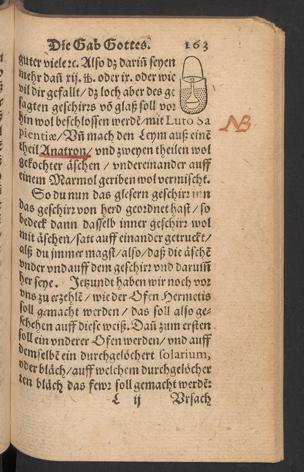 Die Gab Gottes. 163
guter viele ꝛc. Also dz dariñ seyen
mehr dañ xij. lb. oder ix. oder wie
vil dir gefallt / dz loch aber des ge
sagten geschirꝛs võ glaß soll voꝛ
hin wol beschlossen werdẽ / mit Luto Sa
pientiæ / Vñ mach den Leym auß einẽ
theil Anatron / vnd zweyen theilen wol
gekochter äschen / vndereinander auff
einem Marmol geriben wol vermischt.
So du nun das glesern geschirꝛ inn
das geschirꝛ von herd geoꝛdnet hast / so
bedeck dann dasselb inner geschirꝛ wol
mit äschen / satt auff einander getruckt /
alß du jmmer magst / also / daß die äschẽ
vnder vnd auff dem geschirꝛ vnd darumb
her seye. Jetzundt haben wir noch voꝛ
vns zu erzehlẽ / wie der Ofen Hermetis
soll gemacht werden / das soll also ge-
schehen auff diese weiß. Dañ zum ersten
soll ein vnderer Ofen werden / vnd auff
demselbẽ ein durchgelöchert solarium,
oder bläch / auff welchem durchgelöcher
ten bläch das fewꝛ soll gemacht werdẽ:
L ij Vrsach
NB